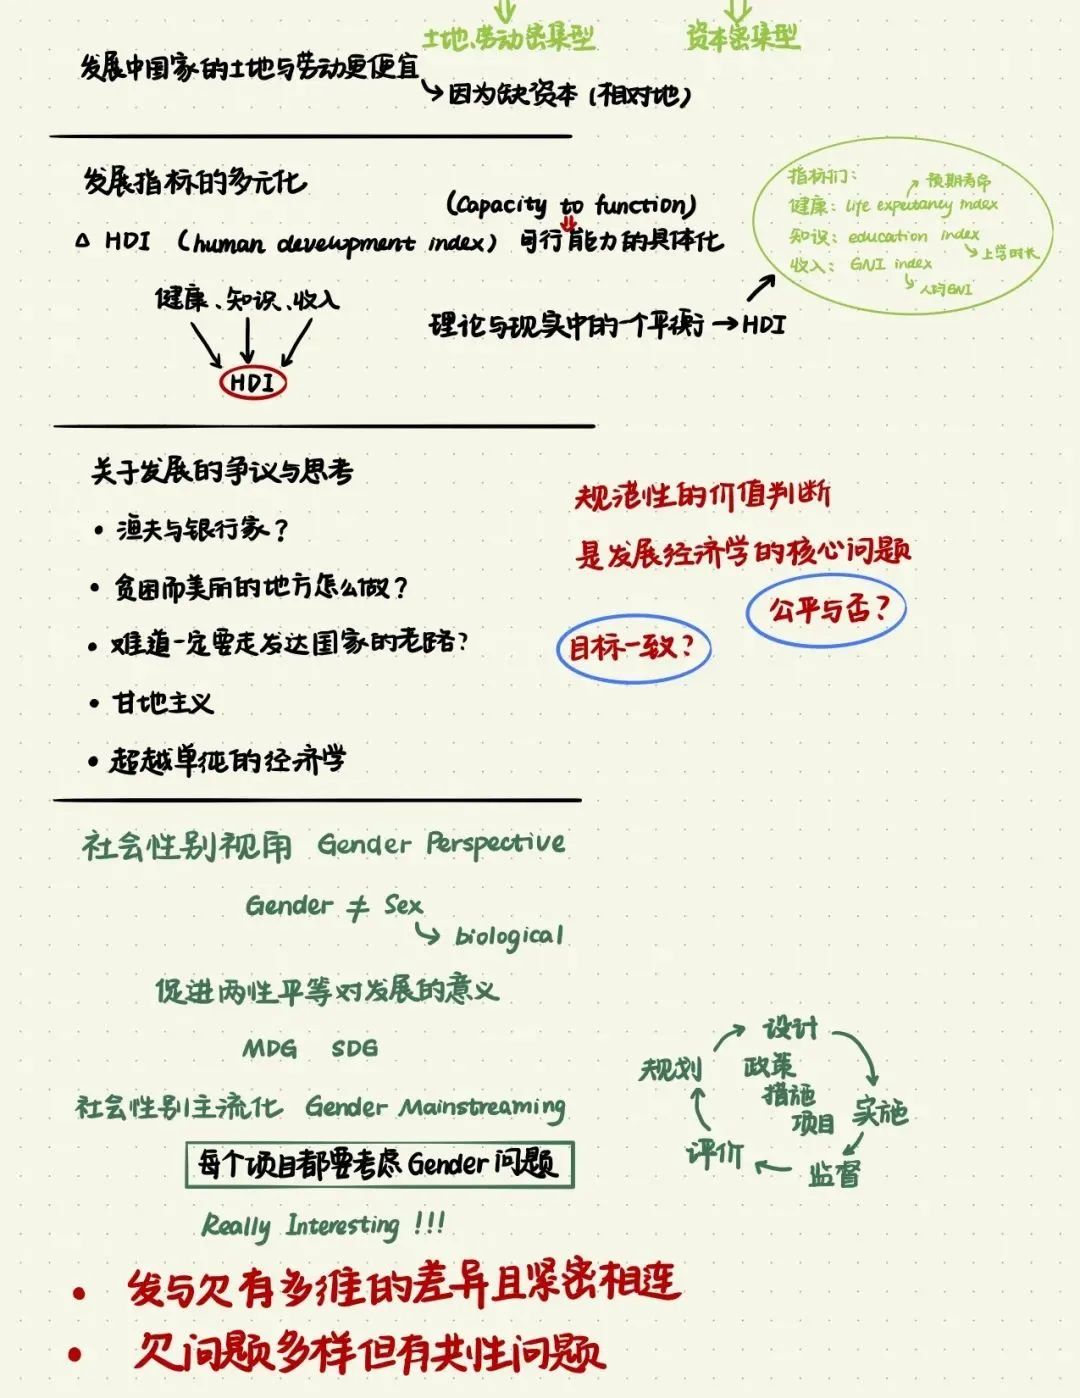 土地、劳动密集型
资本密集型
发展中国家的土地与劳动更便宜
因为缺资本(相对地)
发展指标的多元化
(Capacity to function)
△ HDI (human development index) 可行能力的具体化
健康、知识、收入
HDI
理论与现实中的一个平衡→HDI
指标们:
预期寿命
健康: life expectancy index
知识: education index
上学时长
收入: GNI index
人均GNI
关于发展的争议与思考
• 渔夫与银行家?
• 贫困而美丽的地方怎么做?
• 难道一定要走发达国家的老路?
• 甘地主义
• 超越单纯的经济学
规范性的价值判断
是发展经济学的核心问题
公平与否?
目标一致?
社会性别视角 Gender Perspective
Gender ≠ Sex
biological
促进两性平等对发展的意义
MDG SDG
社会性别主流化 Gender Mainstreaming
每个项目都要考虑Gender问题
Really Interesting !!!
设计
规划
政策
措施
项目
实施
评价
监督
• 发与欠有多维的差异且紧密相连
• 欠问题多样但有共性问题